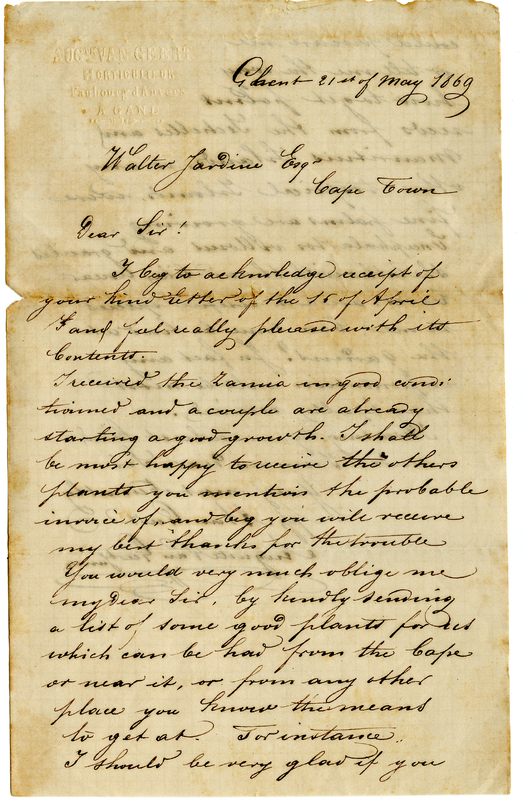 AUG^te VAN GEERT
HORTICULTEUR
Faubourg d'Anvers
A GAND
Ghent 21st of May 1869
Walter Jardine Esq^r
Cape Town
Dear Sir!
I beg to acknowledge receipt of
your kind letter of the 15 of April
and feel really pleased with its
Contents.
I received the Zamia in good condi
tioned and a couple are already
starting a good growth. I shall
be most happy to receive the others
plants you mention the probable
invoice of, and beg you will receive
my best thanks for the trouble
You would very much oblige me
my Dear Sir, by kindly sending
a list of some good plants for us
which can be had from the Cape
or near it, or from any other
place you know the means
to get at. For instance,
I should be very glad if you